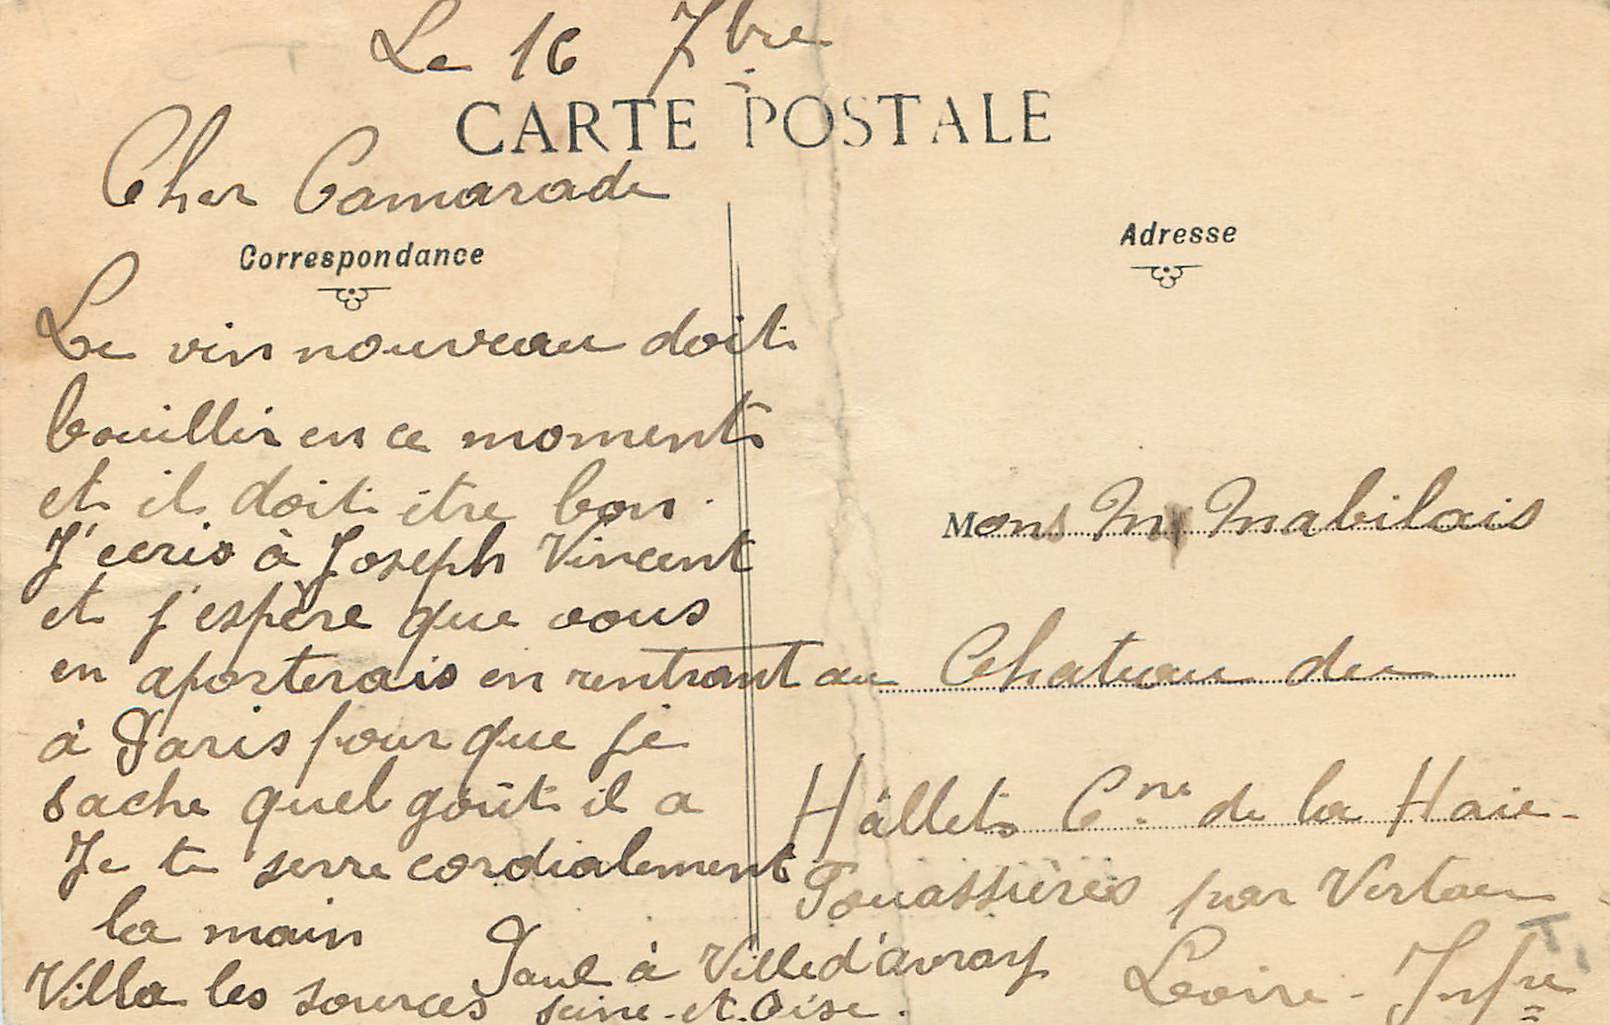 Le 16 7bre
CARTE POSTALE
Cher Camarade
Correspondance
Le vin nouveau doit
bouillir en ce moment
et il doit être bon.
J'ecris à Joseph Vincent
et j'espère que vous
en aporterais en rentrant
à Paris pour que je
sache quel goût il a
Je te serre cordialement
la main
Paul à Ville d'avray
Villa les sources seine-et-Oise.
Adresse
Mons Mabilais
au Chateau du
Hâllets Cne de la Haie-
Fouassières par Vertou
Loire-Infre